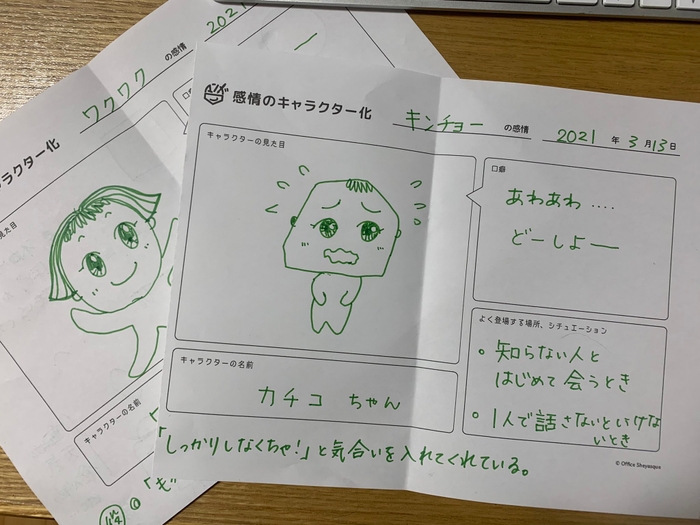 感情のキャラクター化
キンチョー の感情
2021 年 3 月 13 日
キャラクターの見た目
口癖
あわあわ ‥‥
どーしよー
よく登場する場所、シチュエーション
。知らない人と
はじめて会うとき
。1人で話さないといけな
いとき
キャラクターの名前
カチコ ちゃん
「しっかりしなくちゃ!」と気合いを入れてくれている。
© Office Shayaopus
ワクワク の感情
2021
ラクター化
見た目
口
キャラクターの名前